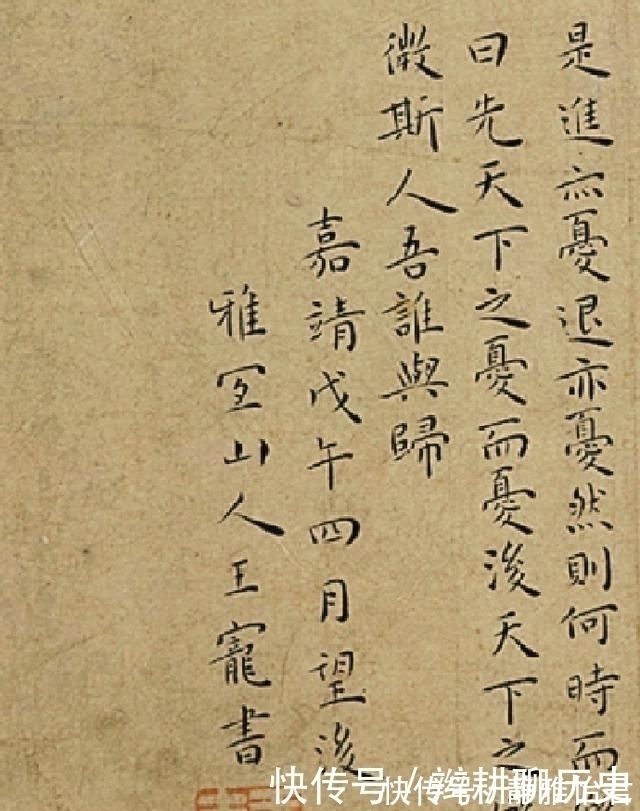 是進亦憂退亦憂然則何時而
曰先天下之憂而憂後天下之
微斯人吾誰與歸
嘉靖戊午四月望後
雅宜山人王寵書
快传号/辫耕聊历史
快传号/静雅